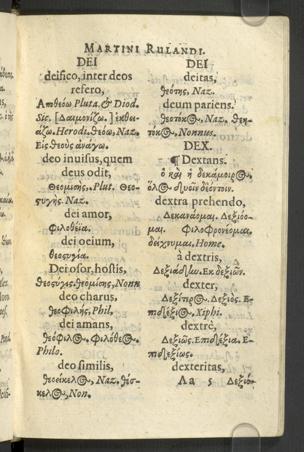 MARTINI RULANDI.
DEI
deifico, inter deos
refero,
Αποθεόω Pluta. & Diod.
Sic. [Δαιμονίζω.] ἐκθει-
άζω. Herodi. θεόω, Naz.
Εἰς θεοὺς ἀνάγω.
deo inuisus, quem
deus odit,
Θεομισὴς, Plut. Θεο-
στυγὴς. Naz.
dei amor,
Φιλοθεΐα.
dei odium,
θεοστυγία.
Dei osor, hostis,
Θεοστυγὴς. θεομίσης, Nonn.
deo charus,
θεοφιλὴς, Phil.
dei amans,
θεόφιλος. Φιλόθεος.
Philo.
deo similis,
θεοείκελος, Naz.
Non.
DEI
deitas,
θεότης, Naz.
deum pariens.
θεοτόκος, Naz. θεη-
τόκος, Nonnus.
DEX.
¶ Dextans.
ὁ καὶ ἡ
dextra prehendo,
Δεκανάομαι. Δεξιόο-
μαι. Φιλοφρονέομαι.
δείκνυμαι, Home.
à dextris,
Ἐκ δεξιῶν.
dexter,
Δεξίτερος. Δεξιὸς. Ε-
πιδέξιος, Xiphi.
dextrè,
Δεξιῶς. Επιδέξια. Ε-
πιδεξίως.
dexteritas,
Aa 5 Δεξιό-